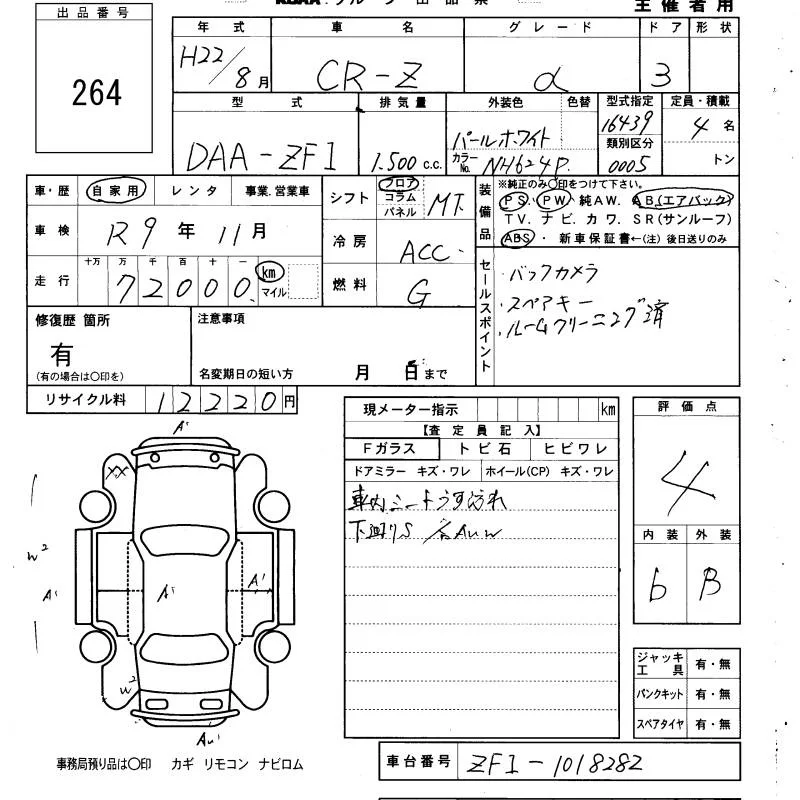 出品番号
264
主催者用
年式 車名 グレード ドア 形状
H22/8月 CR-Z α 3
型式 排気量 外装色 色替 型式指定 定員・積載
DAA-ZF1 1.500 c.c. パールホワイト 16439 4名
カラーNo. NH624P. 類別区分 0005 トン
車・歴 自家用 レンタ 事業.営業車
車検 R9年11月
走行 十万 万 千 百 十 一
72000. km マイル
シフト フロア コラム パネル MT.
冷房 ACC.
燃料 G
装備品
※純正のみ〇印をつけて下さい。
PS. PW. 純AW. AB.(エアバック)
TV. ナビ. カワ. SR(サンルーフ)
ABS. 新車保証書←(注) 後日送りのみ
セールスポイント
・バックカメラ
・スペアキー
・ルームクリーニング済
修復歴 箇所
有
(有の場合は〇印を)
注意事項
名変期日の短い方 月 日まで
リサイクル料 12220円
現メーター指示 km
【査定員記入】
Fガラス トビ石 ヒビワレ
ドアミラー キズ・ワレ ホイール(CP) キズ・ワレ
車内シートうす汚れ
下廻りS
評価点
4
内装 外装
b B
ジャッキ工具 有・無
パンクキット 有・無
スペアタイヤ 有・無
A'
XX
W²
A'
A'
A'
W²
AW'
事務局預り品は〇印 カギ リモコン ナビロム
車台番号 ZF1-1018282